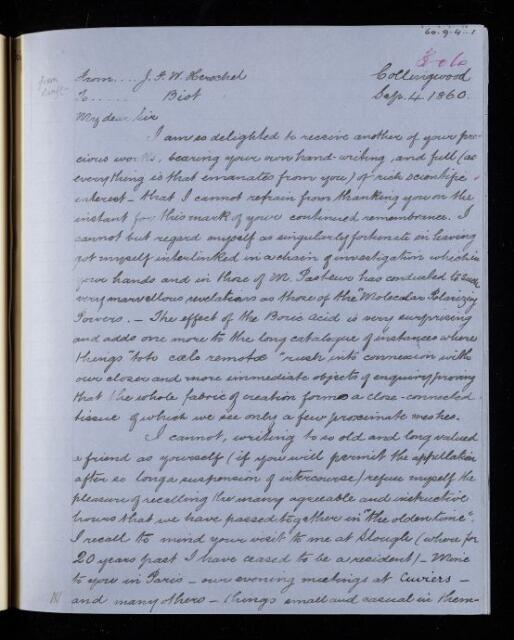 60.9.4.1
from
draft
From.... J. F. W. Herschel
Collingwood
To...... Biot
Sep. 4. 1860.
My dear Sir
I am so delighted to receive another of your pre-
cious works, bearing your own hand-writing, and full (as
everything is that emanates from you) of rich scientific
interest - that I cannot refrain from thanking you on the
instant for this mark of your continued remembrance. I
cannot but regard myself as singularly fortunate in having
got myself interlinked in a chain of investigation which in
your hands and in those of M. Pasteur has conducted to such
very marvellous revelations as those of the "Molecular Polarizing
Powers. - The effect of the Boric Acid is very surprising
and adds one more to the long catalogue of instances where
things "toto cælo remotæ" rush into connexion with
our closer and more immediate objects of enquiry proving
that the whole fabric of creation forms a close-connected
tissue of which we see only a few proximate meshes.
I cannot, writing to so old and long valued
a friend as yourself (if you will permit the appellation
after so long a suspension of intercourse) refuse myself the
pleasure of recalling the many agreeable and instructive
hours that we have passed together in "the olden time".
I recall to mind your visit to me at Slough (where for
20 years past I have ceased to be a resident) - Mine
to you in Paris - our evening meetings at Cuviers -
and many others - things small and casual in them-